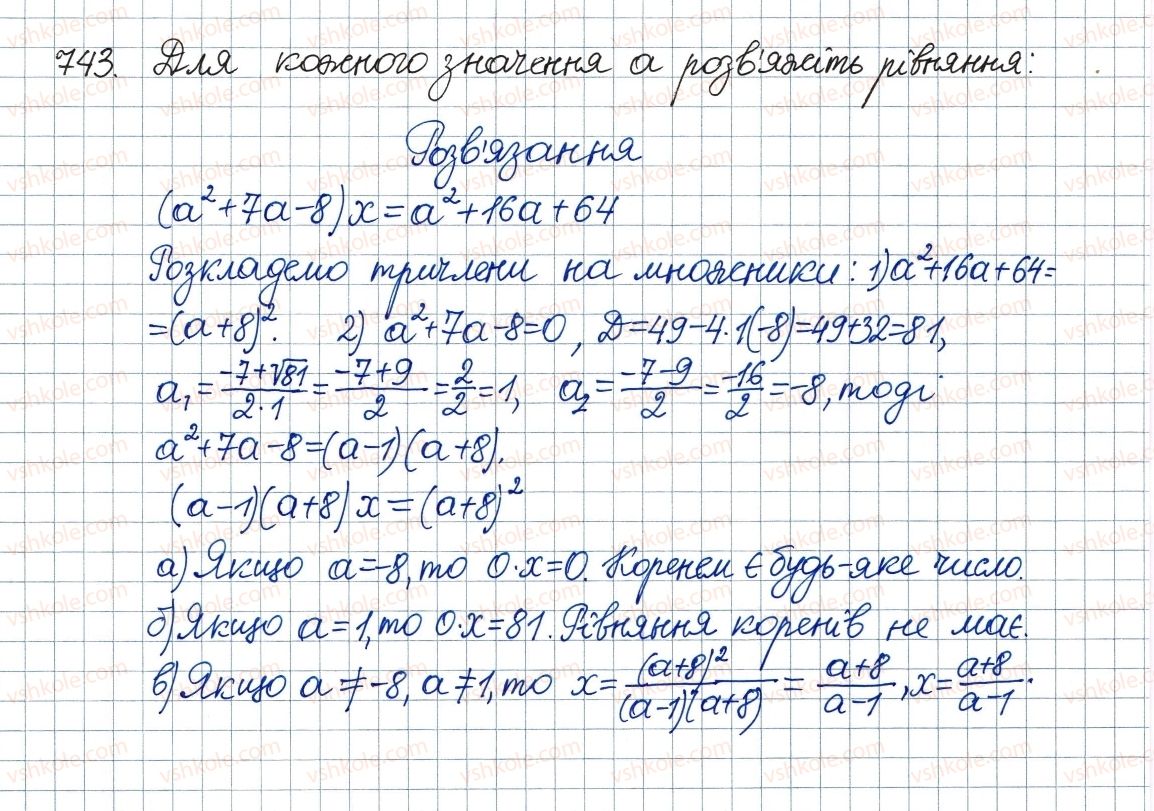 743. Для кожного значення а розв'яжіть рівняння:
Розв'язання
(a²+7a-8)x=a²+16a+64
Розкладемо тричлени на множники: 1) a²+16a+64=
=(a+8)². 2) a²+7a-8=0, D=49-4·1(-8)=49+32=81,
a₁=(-7+√81)/(2·1)=(-7+9)/2=2/2=1, a₂=(-7-9)/2=-16/2=-8, тоді
a²+7a-8=(a-1)(a+8).
(a-1)(a+8)x=(a+8)²
а) Якщо a=-8, то 0·x=0. Коренем є будь-яке число.
б) Якщо a=1, то 0·x=81. Рівняння коренів не має.
в) Якщо a≠-8, a≠1, то x=(a+8)²/((a-1)(a+8))=(a+8)/(a-1), x=(a+8)/(a-1).
vshkole.com